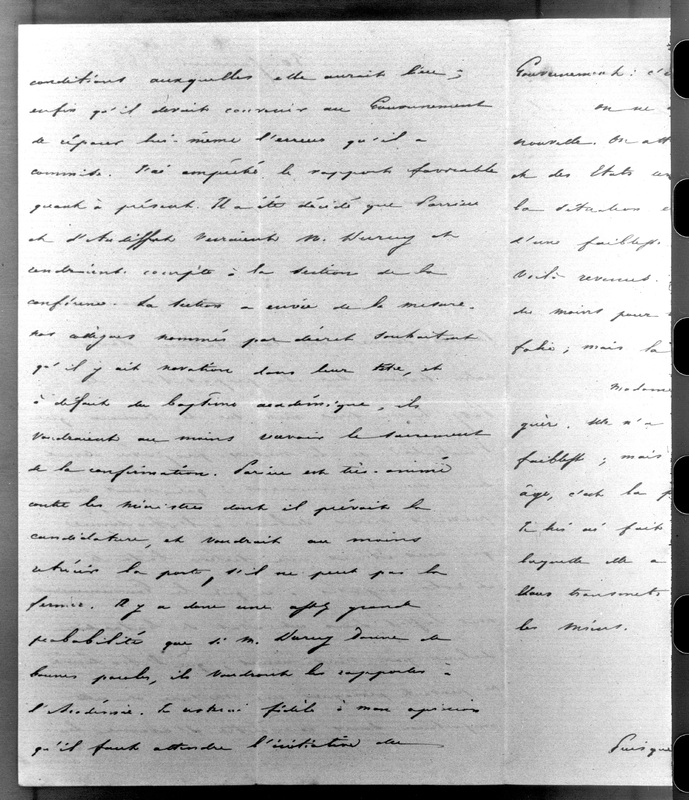 conditions auxquelles elle aurait lieu ;
enfin qu'il devait convenir au Gouvernement
de réparer lui-même l'erreur qu'il a
commise. J'ai empêché le rapport favorable
quant à présent. Il a été décidé que Parieu
et d'Audiffret verraient M. Duruy et
rendraient compte à la section de la
conférence. La section a envie de la mesure.
nos collègues nommés par décret souhaitent
qu'il y ait novation dans leur titre, et
à défaut du baptême académique, ils
voudraient au moins recevoir le sacrement
de la confirmation. Parieu est très-animé
contre les ministres dont il prévoit la
candidature, et voudrait au moins
rétrécir la porte, s'il ne peut pas la
fermer. Il y a donc une assez grande
probabilité que si M. Duruy donne de
bonnes paroles, ils voudront les rapporter à
l'Académie. Je resterai fidèle à mon opinion
qu'il faut attendre l'initiative du
Gouvernement : c'e
on ne
nouvelle. On att
et des Etats un
la situation
d'une faiblesse
Voilà revenus.
du moins pour
folie ; mais la
Madame
guéri. elle n'a
faiblesse ; mais
âge, c'est la p
Je lui ai fait
laquelle elle a
Vous transmet
les miens.
Puisque